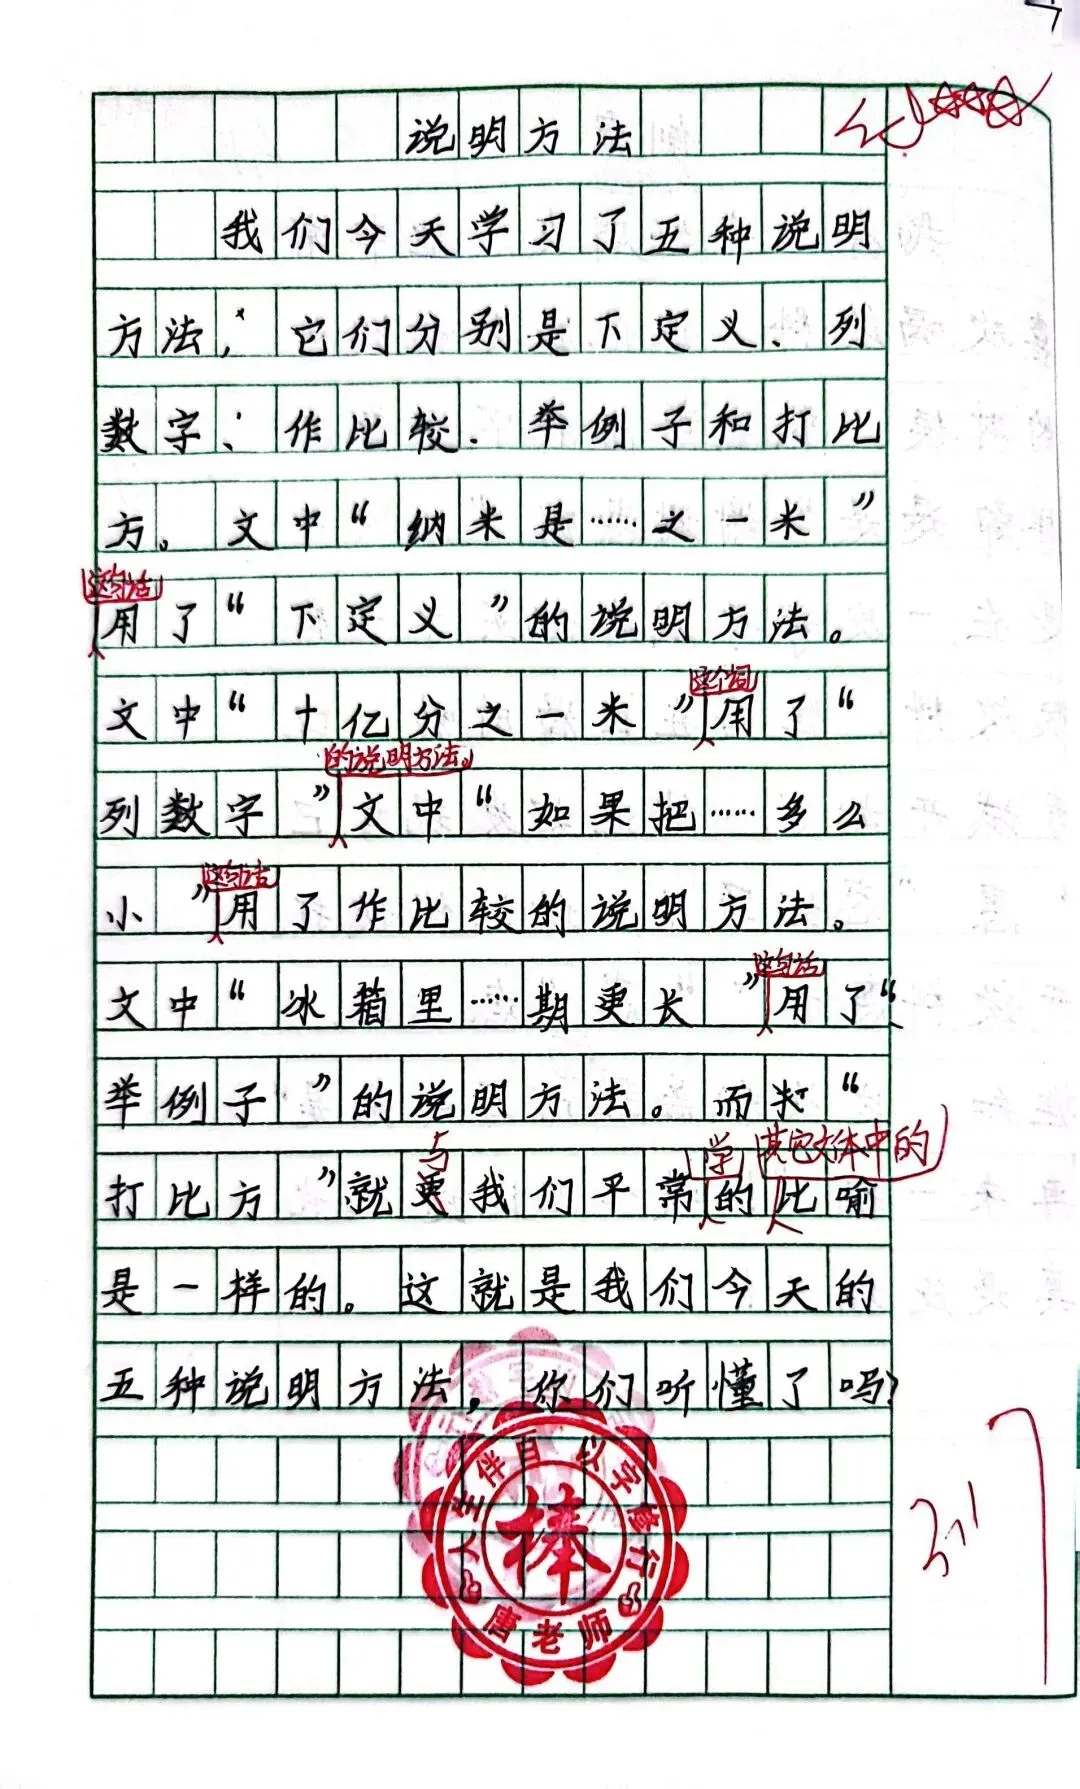 说明方法
我们今天学习了五种说明
方法，它们分别是下定义、列
数字、作比较、举例子和打比
方。文中“纳米是……之一米”
这句话
用了“下定义”的说明方法。
这个词
文中“十亿分之一米”用了“
的说明方法。
列数字”文中“如果把……多么
这句话
小”用了作比较的说明方法。
这句话
文中“冰箱里……期更长”用了“
举例子”的说明方法。而“
与 学 其它文体中的
打比方”就更我们平常的比喻
是一样的。这就是我们今天的
五种说明方法，你们听懂了吗？
人生伴自 以字修行
棒
唐老师
3/7